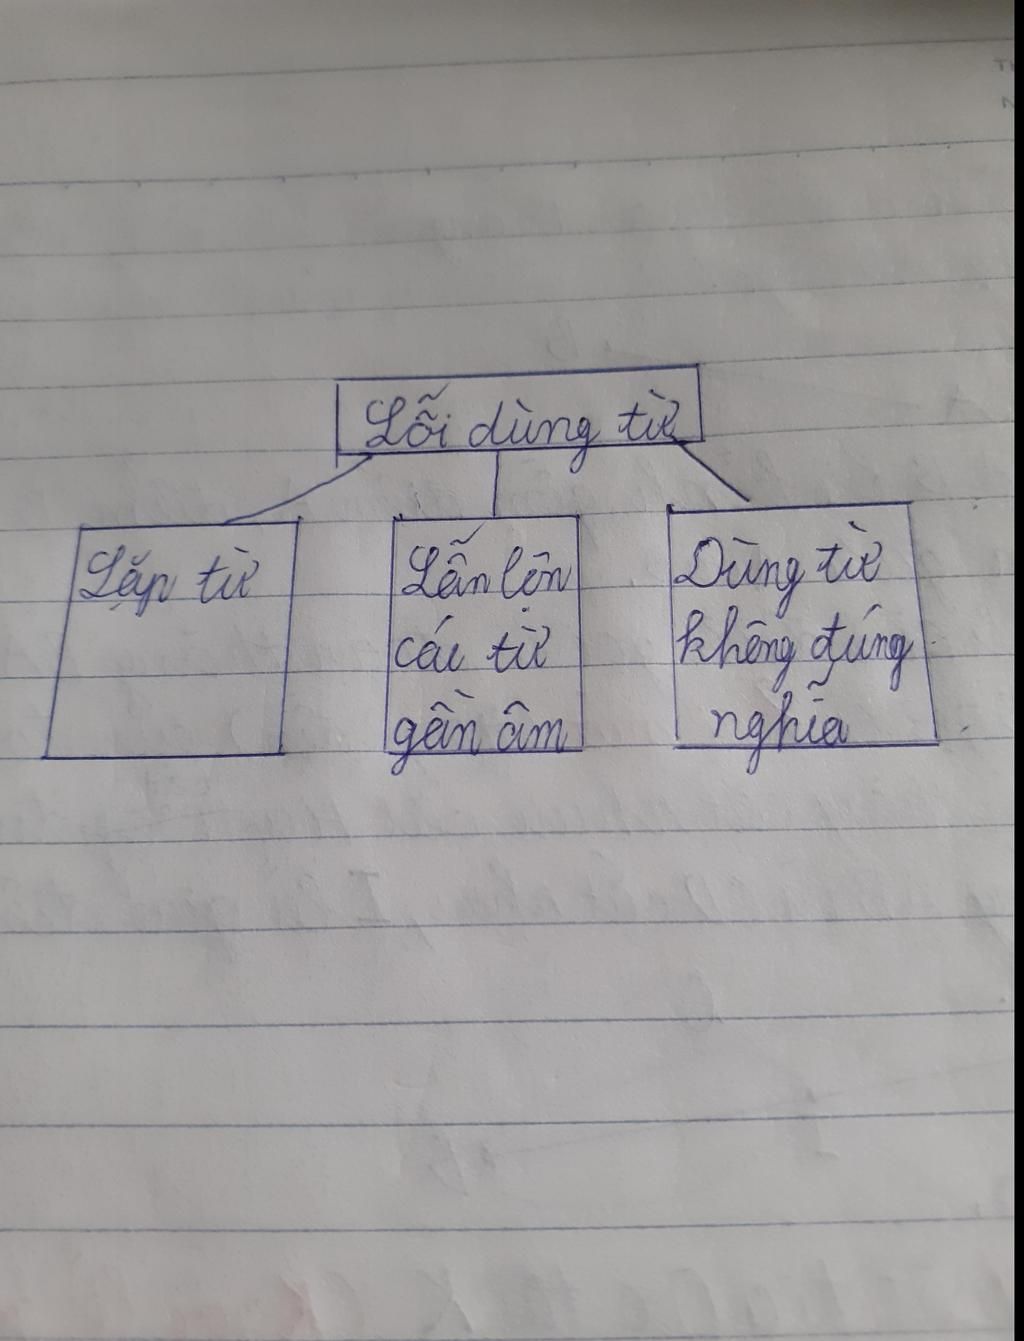 Lỗi dùng từ
Lặp từ
Lẫn lộn
các từ
gần âm
Dùng từ
không đúng
nghĩa